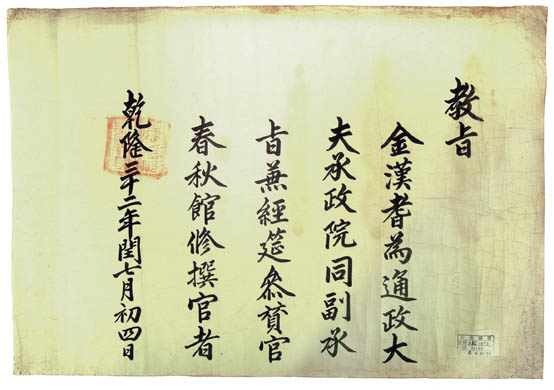 教旨
金漢耆為通政大
夫承政院同副承
旨兼經筵參賛官
春秋館修撰官者
乾隆三十二年閏七月初四日